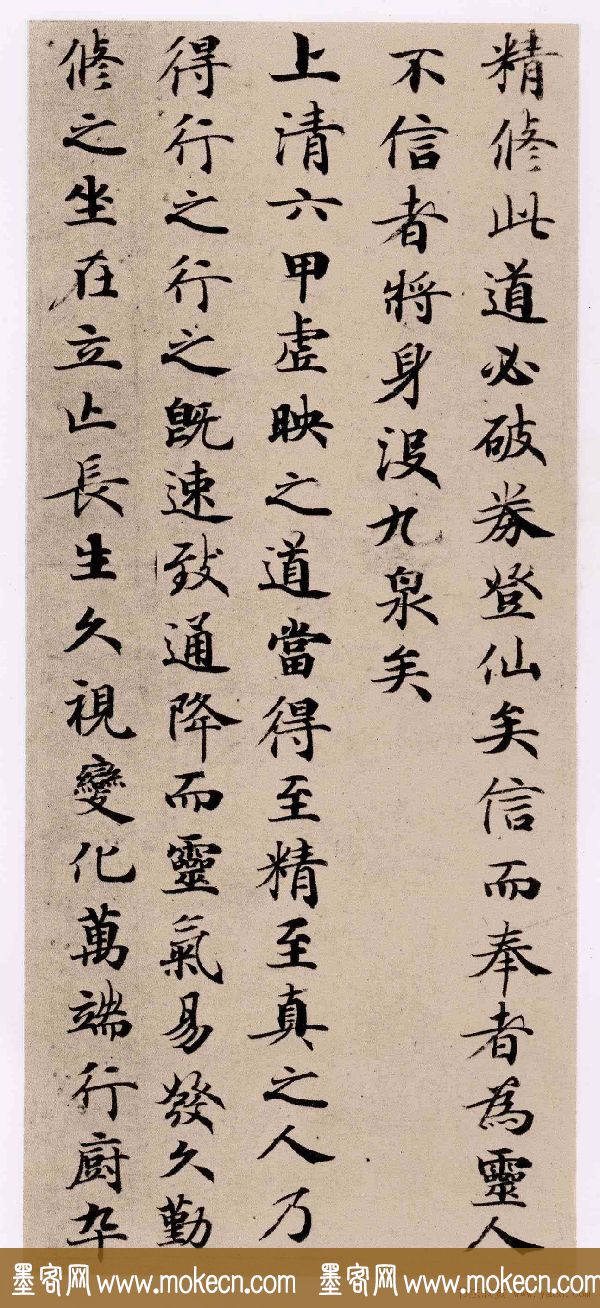 精修此道必破券登仙矣信而奉者為靈人
不信者將身沒九泉矣
上清六甲虛映之道當得至精至真之人乃
得行之行之既速致通降而靈氣易發久勤
修之坐在立亡長生久視變化萬端行廚卒
墨客网www.mokecn.com 墨客网www.mokecn.com